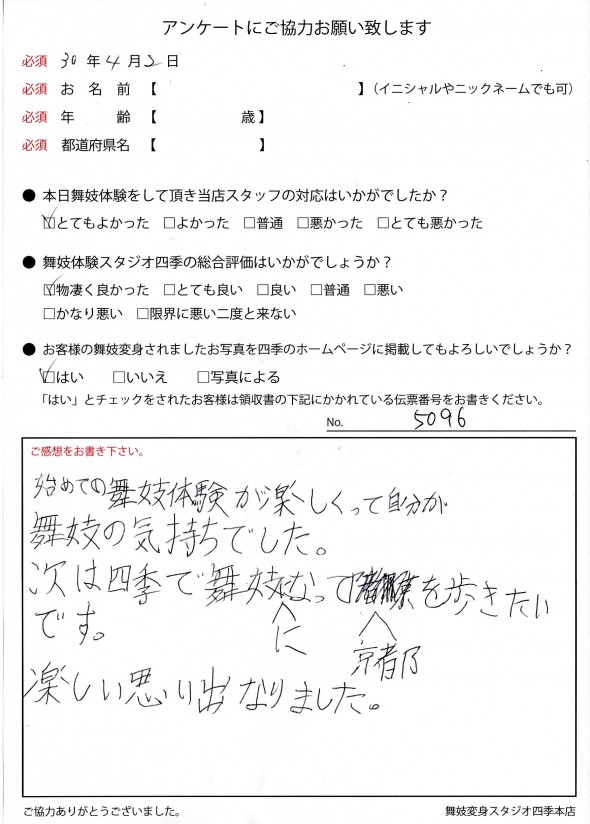 アンケートにご協力お願い致します
必須 30年4月2日
必須 お名前【 】(イニシャルやニックネームでも可)
必須 年齢【 歳】
必須 都道府県名【 】
● 本日舞妓体験をして頂き当店スタッフの対応はいかがでしたか?
☑とてもよかった □よかった □普通 □悪かった □とても悪かった
● 舞妓体験スタジオ四季の総合評価はいかがでしょうか?
☑物凄く良かった □とても良い □良い □普通 □悪い
□かなり悪い □限界に悪い二度と来ない
● お客様の舞妓変身されましたお写真を四季のホームページに掲載してもよろしいでしょうか?
☑はい □いいえ □写真による
「はい」とチェックをされたお客様は領収書の下記にかかれている伝票番号をお書きください。
No. 5096
ご感想をお書き下さい。
始めての舞妓体験が楽しくって自分が
舞妓の気持ちでした。
次は四季で舞妓なってを歩きたい
です。
に
京者乃
楽しい思い出なりました。
ご協力ありがとうございました。
舞妓変身スタジオ四季本店